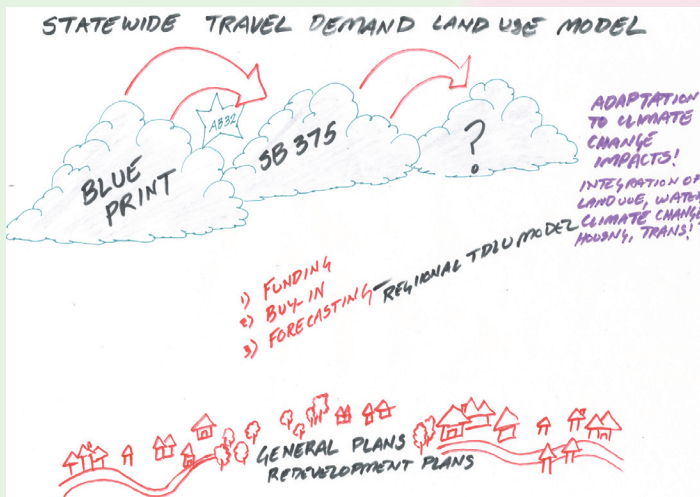 STATEWIDE TRAVEL DEMAND LAND USE MODEL
AB32
BLUE
PRINT
SB 375
?
ADAPTATION
TO CLIMATE
CHANGE
IMPACTS!
INTEGRATION OF
LAND USE, WATER
CLIMATE CHANGE
HOUSNG, TRANS!
1) FUNDING
2) BUY-IN
3) FORECASTING - REGIONAL TDLU MODEL
GENERAL PLANS
REDEVELOPMENT PLANS